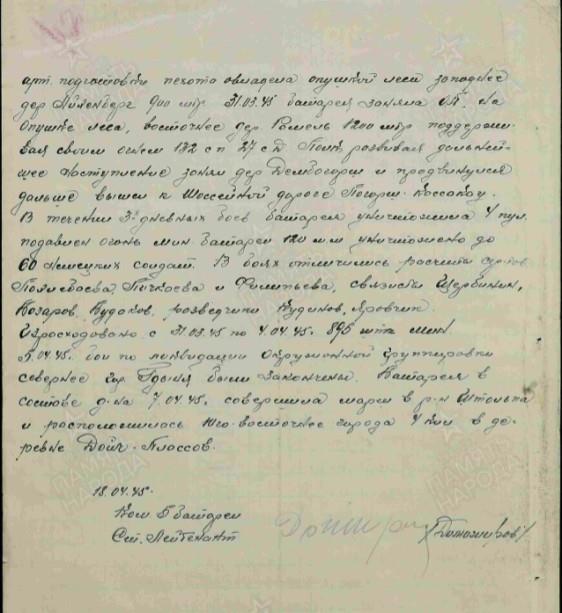 арт. подготовки пехота овладела опушкой леса западнее
дер. 900 мтр. 31.03.45 батарея заняла ОП. на
опушке леса, восточнее дер. Рамель 1200 мтр поддержи-
вая своим огнем 132 с п 27 с д Полк розвивая дольней-
шее наступление занял дер. Дембогорш и продвинулся
дальше вышел к Шоссейной дороге Погорш - Коссакау.
В течении 3х дневных боев батарея уничтожила 4 пул.
подавлен огонь мин. батареи 120 м.м уничтожено до
60 немецких солдат. В боях отличились расчеты
Пичкаева и Филипьева, связисты Щербинин,
Казаров, Кудаков, розведчики Кудинов, Яровчик.
Израсходовано с 31.03.45 по 4.04.45. 896 штк мин
5.04.45. бои по ликвидации окружонной группировки
севернее гор. Гдыня были закончены. Батарея в
составе д-на 7.04.45. совершила марш в р-н Штольпа
и расположилась Юго-восточнее города 4 км в де-
ревне Дойч-Плассов.
18.04.45.
Ком. 5 батареи
Ст. Лейтенант
ПАМЯТЬ
НАРОДА